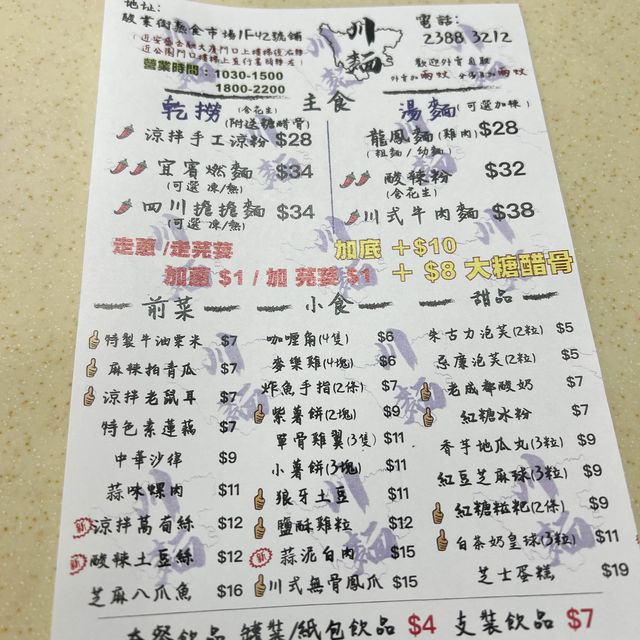 地址:
駿業街熟食市場1F-42號舖
川麵
電話:
2388 3212
歡迎外賣自取
營業時間: 1030-1500
1800-2200
主食
乾撈(含花生)
(附送糖醋骨)
涼拌手工涼粉 $28
宜賓燃麵 $34
(可選 凍/熱)
四川擔擔麵 $34
(可選 凍/熱)
湯麵(可選加辣)
龍鳳麵(雞肉) $28
(粗麵/幼麵)
酸辣粉 $32
(含花生)
川式牛肉麵 $38
走蔥/走芫荽
加蔥 $1 / 加 芫荽 $1
加底 +$10
+ $8 大糖醋骨
前菜
特製牛油粟米 $7
麻辣拍青瓜 $7
涼拌老鼠耳 $7
特色素蓮藕 $7
中華沙律 $9
蒜味螺肉 $11
新 涼拌萵筍絲 $12
新 酸辣土豆絲 $12
芝麻八爪魚 $16
小食
咖喱角(4隻) $6
麥樂雞(4塊) $6
炸魚手指(2條) $7
紫薯餅(2塊) $9
單骨雞翼(3隻) $11
小薯餅(3塊) $11
狼牙土豆 $11
鹽酥雞粒 $12
新 蒜泥白肉 $15
川式無骨鳳爪 $15
甜品
朱古力泡芙(2粒) $5
忌廉泡芙(2粒) $5
老成都酸奶 $7
紅糖冰粉 $7
香芋地瓜丸(3粒) $9
紅豆芝麻球(3粒) $9
紅糖糍粑(2條) $9
白茶奶皇球(3粒) $11
芝士蛋糕 $19
套餐飲品 罐裝/紙包飲品 $4 支裝飲品 $7